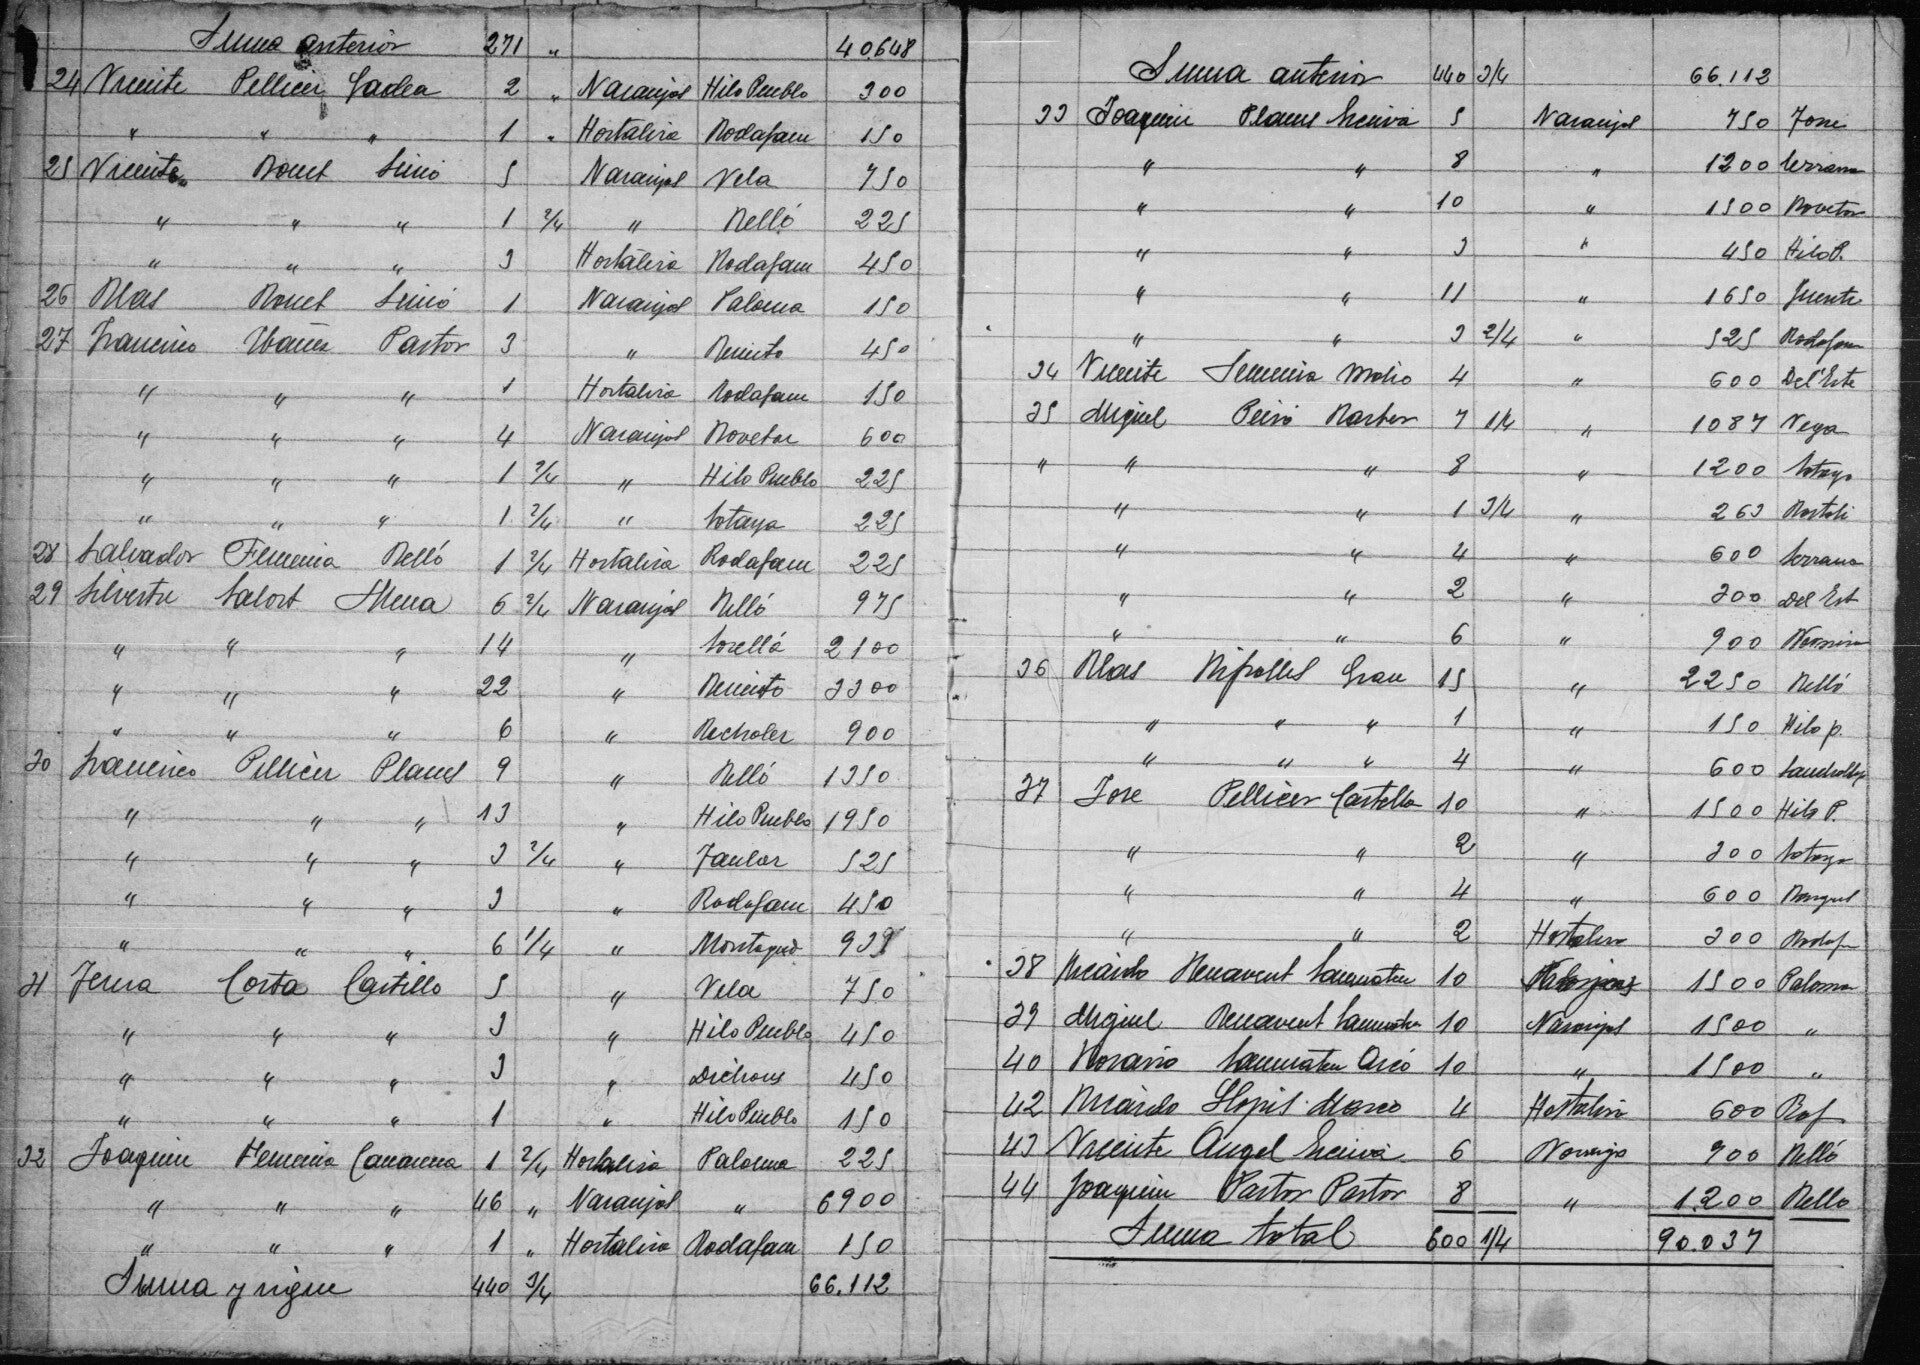 Suma anterior 271 " 40.648
24 Vicente Pellicer Gadea 2 " Naranjal Hilo Pueblo 300
" " " 1 " Hortaliza Rodafam 150
25 Vicente Bonet 5 Naranjal Vela 750
" " " 1 2/4 " Belló 225
" " " 3 Hortaliza Rodafam 450
26 Blas Bonet 1 Naranjal Paloma 150
27 Francisco Ibañez Pastor 3 " Benieto 450
" " " 1 Hortaliza Rodafam 150
" " " 4 Naranjal Bovetar 600
" " " 1 2/4 " Hilo Pueblo 225
" " " 1 2/4 " Sotaya 225
28 Salvador Femenia Belló 1 2/4 Hortaliza Rodafam 225
29 Silvestre Salort Mena 6 2/4 Naranjal Belló 975
" " " 14 " Sorellá 2100
" " " 22 " Benieto 3300
" " " 6 " Recholar 900
30 Francisco Pellicer Planes 9 " Belló 1350
" " " 13 " Hilo Pueblo 1950
" " " 3 2/4 " Faular 525
" " " 3 " Rodafam 450
" " " 6 1/4 " 938
31 Costa Castillo 5 " Vela 750
" " " 3 " Hilo Pueblo 450
" " " 3 " Dichous 450
" " " 1 " Hilo Pueblo 150
32 Joaquin Femenia 1 2/4 Hortaliza Paloma 225
" " " 46 " Naranjal " 6900
" " " 1 " Hortaliza Rodafam 150
Suma y sigue 440 3/4 66.112
Suma anterior 440 3/4 66.112
33 Joaquin Planes Escrivá 5 Naranjal 750
" " 8 " 1200 Serrana
" " 10 " 1500 Bovetar
" " 3 " 450 Hilo P.
" " 11 " 1650 Fuente
" " 3 2/4 " 525 Rodafam
34 Vicente Femenia 4 " 600 Del Este
35 Miguel Peiró Barber 7 1/4 " 1087 Vega
" " " 8 " 1200 Sotaya
" " 1 3/4 " 263
" " 4 " 600 Serrana
" " 2 " 300 Del Est
" " 6 " 900
36 Blas Ripolles Grau 15 " 2250 Belló
" " " 1 " 150 Hilo p.
" " " 4 " 600
37 Jose Pellicer Castella 10 " 1500 Hilo P.
" " 2 " 300 Sotaya
" " 4 " 600
" " 2 Hortaliza 300 Rodaf
38 Ricardo Benavent Sanmateu 10 1500 Paloma
39 Miguel Benavent Sanmateu 10 Naranjal 1500 "
40 Rosario Sanmateu 10 " 1500 "
42 Ricardo Llopis 4 Hortaliza 600 Rof
43 Vicente Angel Escrivá 6 Naranja 900 Belló
44 Joaquin Pastor Pastor 8 " 1.200 Bello
Suma total 600 1/4 90.037